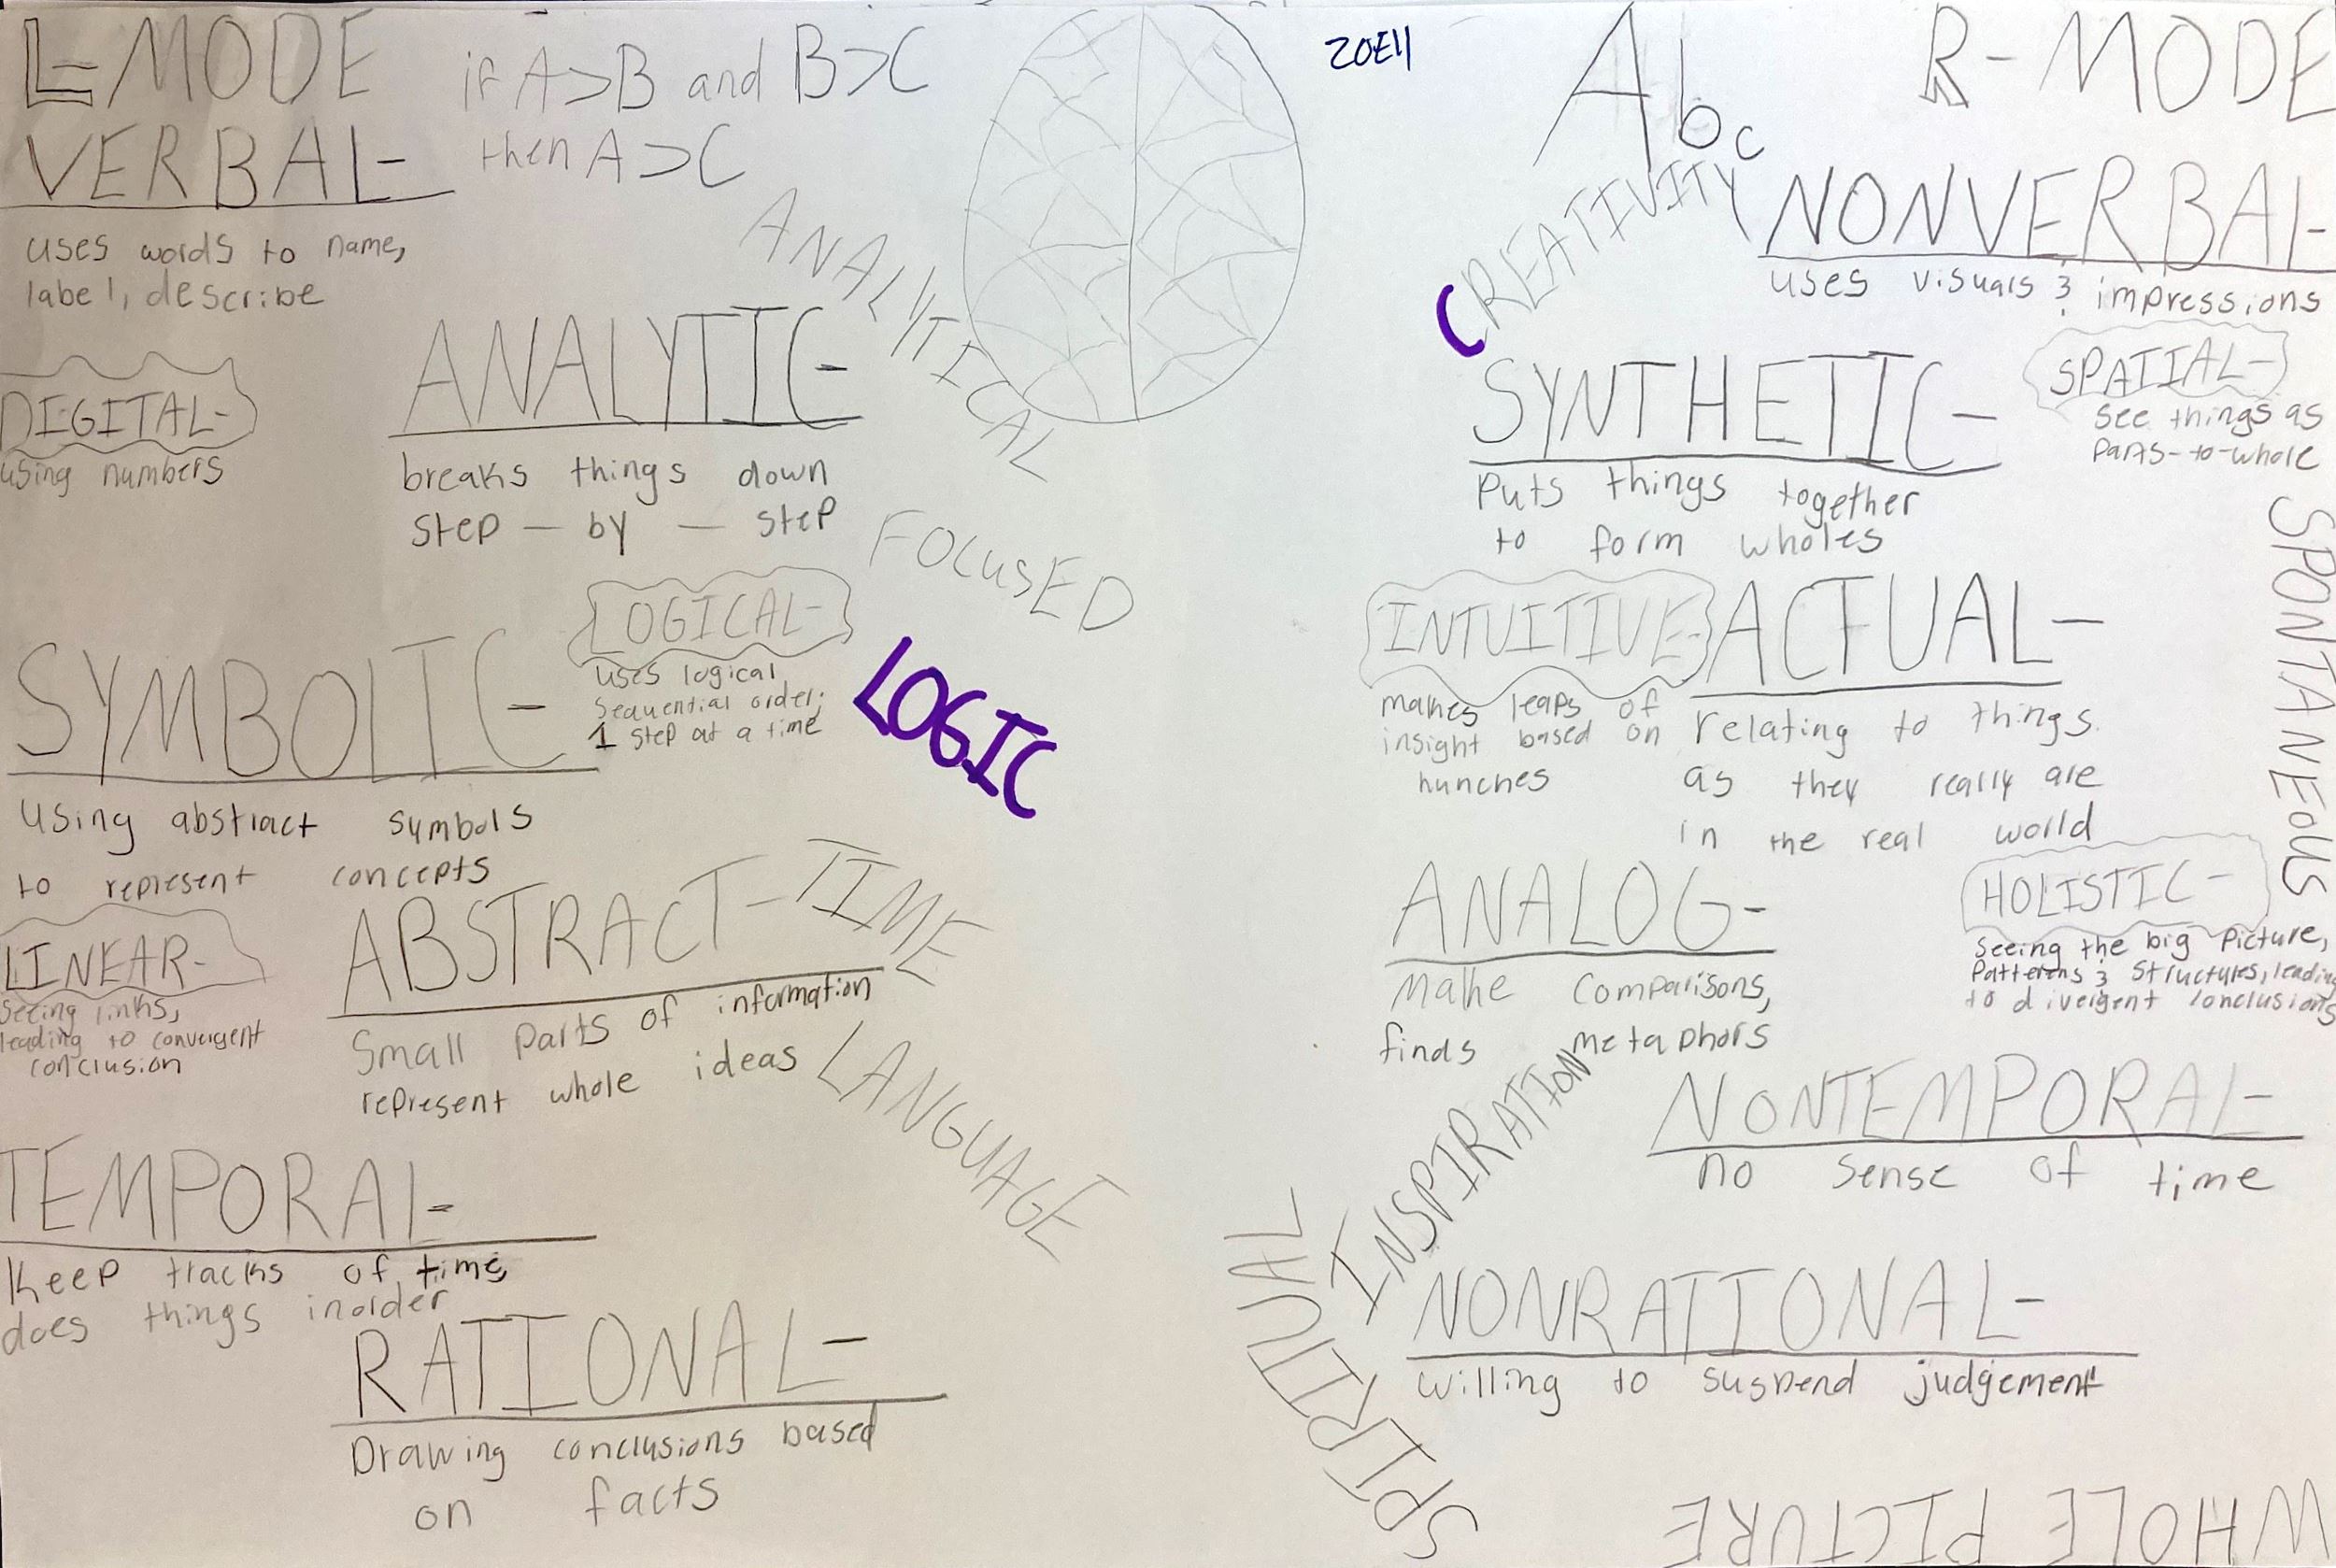 L-MODE
if A>B and B>C
then A>C
VERBAL-
uses words to name,
label, describe
ANALYTICAL
DIGITAL-
using numbers
ANALYTIC-
breaks things down
step - by - step
FOCUSED
LOGICAL-
uses logical
sequential order;
1 step at a time
LOGIC
SYMBOLIC-
using abstract symbols
to represent concepts
TIME
LINEAR-
seeing links,
leading to convergent
conclusion
ABSTRACT-
Small parts of information
represent whole ideas
LANGUAGE
TEMPORAL-
Keep tracks of time,
does things inorder
RATIONAL-
Drawing conclusions based
on facts
Abc
R-MODE
CREATIVITY
NONVERBAL-
uses visuals & impressions
SYNTHETIC-
Puts things together
to form wholes
SPATIAL-
see things as
parts-to-whole
SPONTANEOUS
INTUITIVE-
makes leaps of
insight based on
hunches
ACTUAL-
relating to things
as they really are
in the real world
ANALOG-
Make comparisons,
finds metaphors
HOLISTIC-
Seeing the big picture,
Patterens & Structures, leading
to divergent conclusions
INSPIRATION
NONTEMPORAL-
no sense of time
SPIRITUAL
NONRATIONAL-
willing to suspend judgement
WHOLE PICTURE